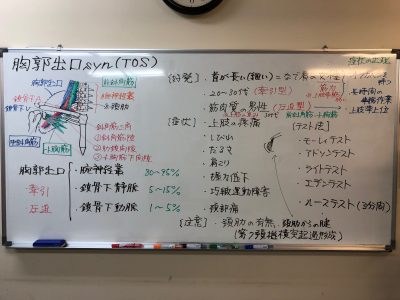 胸郭出口syn(TOS)
胸郭出口
前斜角筋
腕神経叢
鎖骨下A
鎖骨下V
小胸筋
斜角筋三角
①斜角筋隙
②肋鎖間隙
③小胸筋下間隙
胸郭出口
牽引
圧迫
・腕神経叢 80〜95%
・鎖骨下静脈 5〜15%
・鎖骨下動脈 1〜5%
〔好発〕・首が長い(細い)なで肩の女性
・20〜30代(牽引型)
・筋肉質の男性(圧迫型)
〔症状〕・上肢の疼痛
・しびれ
・だるさ
・肩こり
・握力低下
・巧緻運動障害
・頚部痛
〔テスト法〕
・モーレイテスト
・アドソンテスト
・ライトテスト
・エデンテスト
・ルーステスト(3分間)
〔注意〕・頚肋の有無
(第7頚椎横突起過形成)
長時間の
上肢挙上位